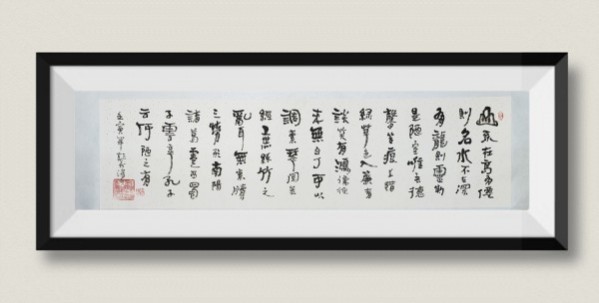 山不在高有僊
則名水不在深
有龍則靈斯
是陋室唯吾德
馨苔痕上階
綠草色入簾青
談笑有鴻儒往
來無白丁可以
調素琴閱金
經無絲竹之
亂耳無案牘
之勞形南陽
諸葛廬西蜀
子雲亭孔子
云何陋之有
寅年